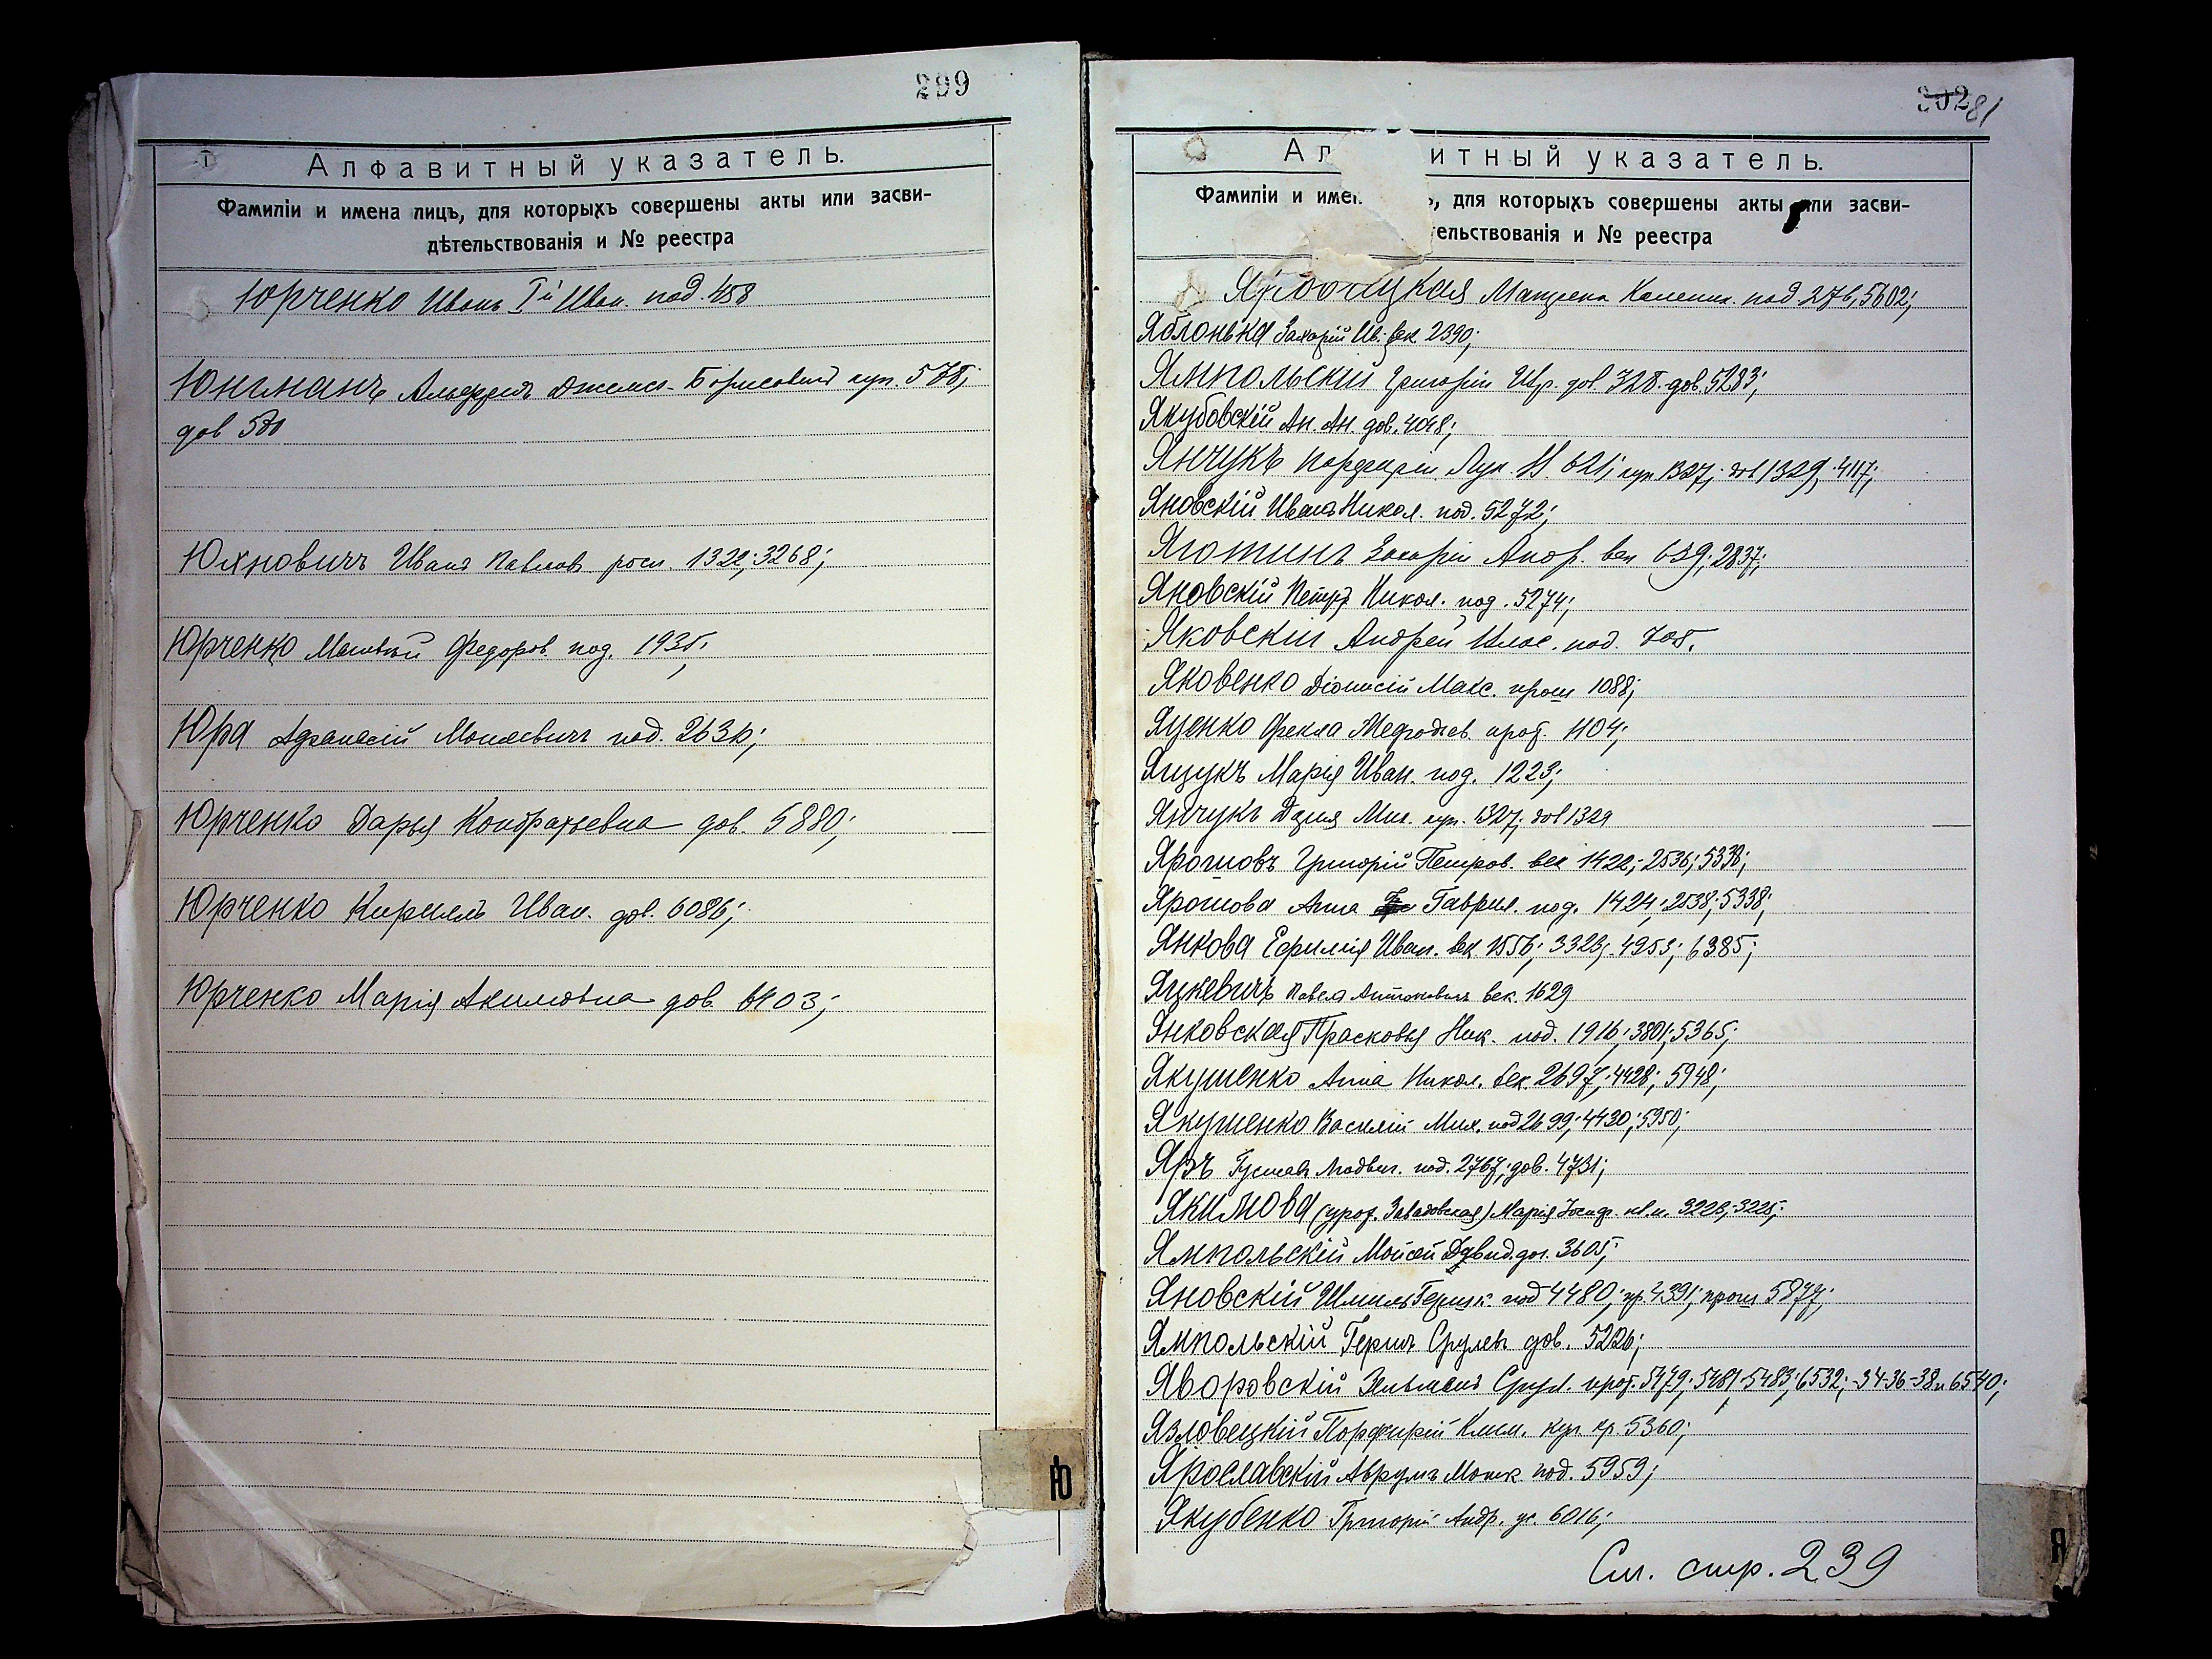 299
Алфавитный указатель.
Фамиліи и имена лицъ, для которыхъ совершены акты или засви-
дѣтельствованія и № реестра
Юрченко Иванъ Iй Иван. под. 458
Юнгманъ Альфредъ Джемсъ-Борисовичъ куп. 578;
дов 580
Юхновичъ Иванъ Павловъ росп. 1322; 3268;
Юрченко Матвѣй Федоров. под. 1935;
Юра Афанасій Моисеевичъ под. 2636;
Юрченко Дарья Кондратьевна дов. 5880;
Юрченко Кириллъ Иван. дов. 6086;
Юрченко Марія Акимовна дов. 6403;
Ю
302 81
Ал итный указатель.
Фамиліи и имен ъ, для которыхъ совершены акты или засви-
тельствованія и № реестра
Матрена под. 276, 5602;
Яблонька Захарій Ив. век 2390;
Ямпольскій Григорій дов. 728. дов. 5283;
Якубовскій Ан. Ан. дов. 4048;
Янчукъ Порфирій Лук. 621; куп. 1327; дов 1329; 4117;
Яновскій Иванъ Никол. под. 5272;
Яготинъ Захарій Андр. век 659; 2837;
Яновскій Петръ Никол. под. 5274;
Яковскій Андрей под. 705.
Яковенко Діонисій Макс. прош 1088;
Яценко Фекла Мефодіев. прот. 1104;
Ящукъ Марія Иван. под. 1223;
Янчукъ Дарія Мих. куп. 1327; дов 1329
Ярошовъ Григорій Петров. век 1422; 2536; 5336;
Ярошова Анна Гаврил. под. 1424; 2538; 5338;
Янкова Ефимія Иван. век 1556; 3323; 4253; 6385;
Яцкевичъ Павелъ Антоновичъ век. 1629
Янковская Прасковья Ник. под. 1916; 3801; 5365;
Якушенко Анна Никол. век. 2697; 4428; 5948;
Якушенко Василій Мих. под 2699; 4430; 5950;
Яръ Густавъ Людвиг. под. 2767; дов. 4731;
Якимова (урож. Завадовская) Марія Іосиф. 3223; 3225;
Ямпольскій Мойсей Давид. дог. 3605;
Яновскій Шмиль Гершк. под 4480; пр. 4391; прош 5877;
Ямпольскій Гершъ Срулевъ дов. 5226;
Яворовскій Зельманъ Срул. прот. 5479; 5481-5483; 6532; -34-36-38 и 6540;
Язловецкій Порфирій Клим. куп кр 5360;
Ярославскій Аврумъ Мошк. под. 5959;
Якубенко Григорій Андр. ус. 6016;
См. стр. 239
Я